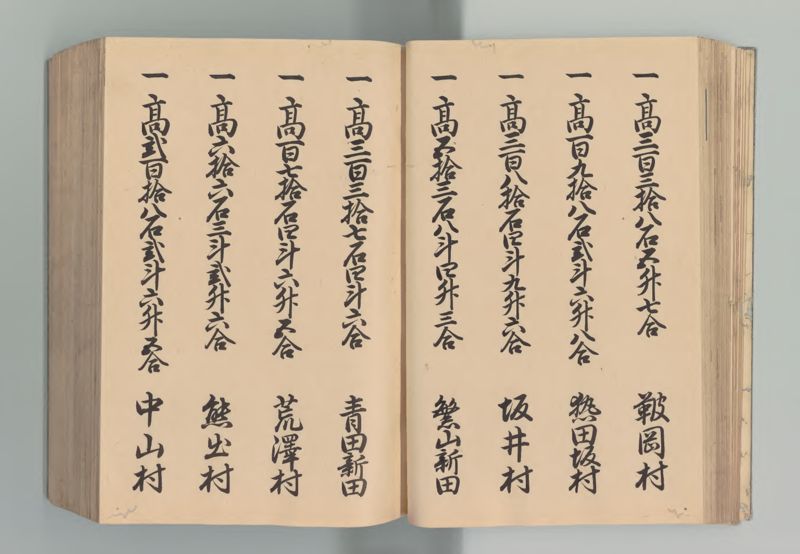 一高三百三拾八石五升七合 鞁岡村
一高百九拾八石弐斗六升八合 熱田坂村
一高三百八拾石四斗九升六合 坂井村
一高五拾三石八斗四升三合 繁山新田
一高三百三拾七石四斗六合 青田新田
一高百七拾石四斗六升五合 荒澤村
一高六拾六石三斗弐升六合 熊出村
一高弐百拾八石弐斗六升五合 中山村